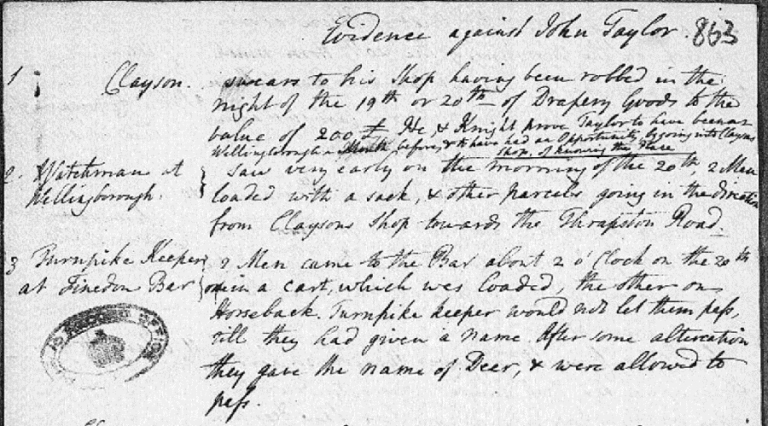 Evidence against John Taylor. 863
1 Clayson. swears to his Shop having been robbed in the
night of the 19th or 20th of Drapery Goods to the
value of 200£ He & Knight prove Taylor to have been at
Wellingborough a Month before, & to have had an Opportunity by going into Claysons
Shop, of knowing the Place
2. Watchman at Wellingborough. } Saw very early on the morning of the 20th, 2 Men
loaded with a sack, & other parcels going in the direction
from Claysons Shop towards the Thrapston Road.
3 Turnpike Keeper at Finedon Bar } 2 Men came to the Bar about 2 o'Clock on the 20th
one in a cart, which was loaded, the other on
Horseback. Turnpike keeper would not let them pass,
till they had given a name. After some altercation
they gave the name of Deer, & were allowed to
pass.